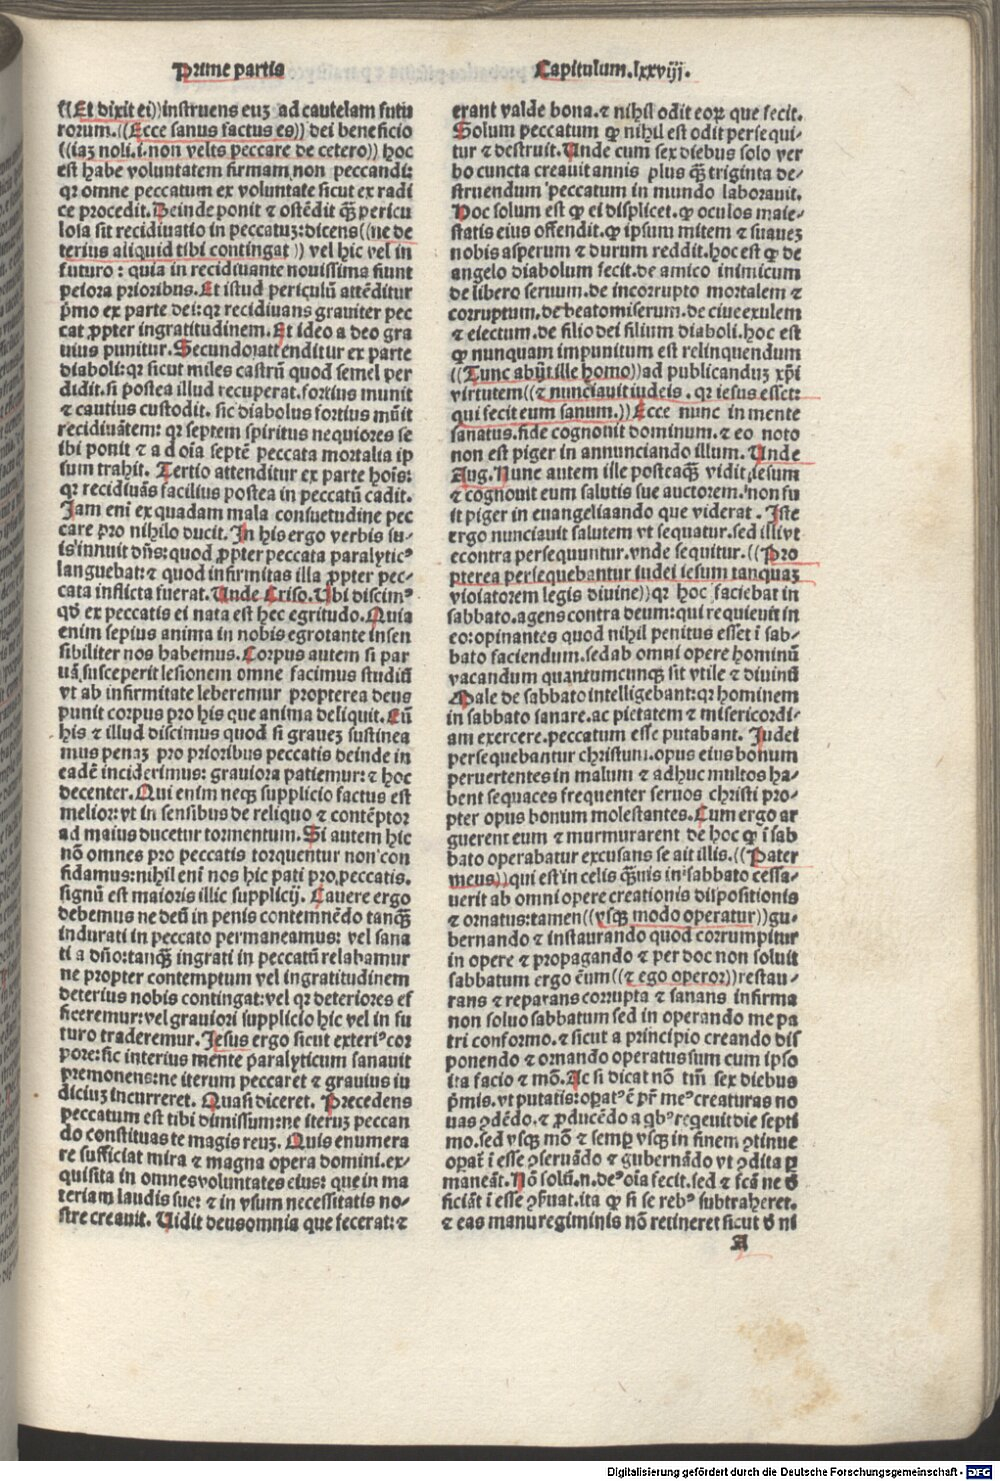 Prime partis
Capitulum.lxxviij.
((Et dixit ei))instruens euꝫ ad cautelam futu
rorum.((Ecce sanus factus es)) dei beneficio
((iaꝫ noli.i.non velis peccare de cetero)) hoc
est habe voluntatem firmam non peccandi:
qꝛ omne peccatum ex voluntate sicut ex radi
ce procedit.Deinde ponit ⁊ ostẽdit qȝ̃ pericu
losa sit recidiuatio in peccatuꝫ:dicens((ne de
terius aliquid tibi contingat )) vel hic vel in
futuro : quia in recidiuante nouissima fiunt
peiora prioribus.Et istud periculũ attẽditur
pͥmo ex parte dei:qꝛ recidiuans grauiter pec
cat ꝓpter ingratitudinem.Et ideo a deo gra
uius punitur.Secundo attenditur ex parte
diaboli:qꝛ sicut miles castrũ quod semel per
didit.si postea illud recuperat.fortius munit
⁊ cautius custodit. sic diabolus fortius mũit
recidiuãtem: qꝛ septem spiritus nequiores se
ibi ponit ⁊ ad oĩa septẽ peccata mortalia ip
sum trahit. Tertio attenditur ex parte hoĩs:
qꝛ recidiuãs facilius postea in peccatũ cadit.
Iam eni ex quadam mala consuetudine pec
care pro nihilo ducit. In his ergo verbis su-
is innuit dñs:quod ꝓpter peccata paralyticꝰ
languebat:⁊ quod infirmitas illa ꝓpter pec-
cata inflicta fuerat. Unde Criso.Ubi discimꝰ
qd̓ ex peccatis ei nata est hec egritudo.Quia
enim sepius anima in nobis egrotante insen
sibiliter nos habemus.Corpus autem si par
uã susceperit lesionem omne facimus studiũ
vt ab infirmitate liberemur propterea deus
punit corpus pro his que anima deliquit.Cũ
his ⁊ illud discimus quod si grauez sustinea
mus penaꝫ pro prioribus peccatis deinde in
eadẽ inciderimus: grauiora patiemur:⁊ hoc
decenter.Qui enim neqȝ supplicio factus est
melior:vt in sensibus de reliquo ⁊ contẽptor
ad maius ducetur tormentum.Si autem hic
nõ omnes pro peccatis torquentur non con
fidamus:nihil eni nos hic pati pro peccatis.
signũ est maioris illic supplicij. Cauere ergo
debemus ne deũ in penis contemnẽdo tanqȝ̃
indurati in peccato permaneamus: vel sana
ti a dño:tanqȝ̃ ingrati in peccatũ relabamur
ne propter contemptum vel ingratitudinem
deterius nobis contingat:vel qꝛ deteriores ef
ficeremur:vel grauiori supplicio hic vel in fu
turo traderemur. Iesus ergo sicut exteriꝰ cor
pore:sic interius mente paralyticum sanauit
premonens:ne iterum peccaret ⁊ grauius iu
diciuꝫ incurreret. Quasi diceret. Precedens
peccatum est tibi dimissum:ne iteruꝫ peccan
do constituas te magis reuꝫ. Quis enumera
re sufficiat mira ⁊ magna opera domini.ex-
quisita in omnes voluntates eius: que in ma
teriam laudis sue: ⁊ in vsum necessitatis no-
stre creauit. Uidit deus omnia que fecerat:⁊
erant valde bona.⁊ nihil odit eoꝝ que fecit.
Solum peccatum qꝫ nihil est odit persequi-
tur ⁊ destruit.Unde cum sex diebus solo ver
bo cuncta creauit annis plus qȝ̃ triginta de-
struendum peccatum in mundo laborauit.
Hoc solum est qꝫ ei displicet.qꝫ oculos maie-
statis eius offendit.qꝫ ipsum mitem ⁊ suauez
nobis asperum ⁊ durum reddit.hoc est qꝫ de
angelo diabolum fecit.de amico inimicum
de libero seruum.de incorrupto mortalem ⁊
corruptum.de beato miserum.de ciue exulem
⁊ eiectum.de filio dei filium diaboli.hoc est
qꝫ nunquam impunitum est relinquendum
((Tunc abijt ille homo))ad publicanduꝫ xp̃i
virtutem((⁊ nunciauit iudeis . qꝛ iesus esset:
qui fecit eum sanum.))Ecce nunc in mente
sanatus.fide cognouit dominum.⁊ eo noto
non est piger in annunciando illum. Unde
Aug.Nunc autem ille posteaqȝ̃ vidit iesum
⁊ cognouit eum salutis sue auctorem.non fu
it piger in euangelizando que viderat . Iste
ergo nunciauit salutem vt sequatur.sed illi vt
econtra persequuntur.vnde sequitur.((Pro
pterea persequebantur iudei iesum tanquaꝫ
violatorem legis diuine))qꝛ hoc faciebat in
sabbato.agens contra deum:qui requieuit in
eo:opinantes quod nihil penitus esset ĩ sab-
bato faciendum.sed ab omni opere hominũ
vacandum quantumcunqȝ sit vtile ⁊ diuinũ
Male de sabbato intelligebant:qꝛ hominem
in sabbato sanare.ac pietatem ⁊ misericordi-
am exercere.peccatum esse putabant. Iudei
persequebantur christum.opus eius bonum
peruertentes in malum ⁊ adhuc multos ha-
bent sequaces frequenter seruos christi pro-
pter opus bonum molestantes.Cum ergo ar
guerent eum ⁊ murmurarent de hoc qꝫ ĩ sab
bato operabatur excusans se ait illis.((Pater
meus))qui est in celis qȝ̃uis in sabbato cessa-
uerit ab omni opere creationis dispositionis
⁊ ornatus:tamen((vsqȝ modo operatur))gu-
bernando ⁊ instaurando quod corrumpitur
in opere ⁊ propagando ⁊ per hoc non soluit
sabbatum ergo ẽum((⁊ ego operor))restau-
rans ⁊ reparans corrupta ⁊ sanans infirma
non soluo sabbatum sed in operando me pa
tri conformo.⁊ sicut a principio creando dis
ponendo ⁊ ornando operatus sum cum ipso
ita facio ⁊ mõ.Ac si dicat nõ tm̃ sex diebus
pͥmis.vt putatis:oꝑatꝰ ẽ pr̃ meꝰ creaturas no
uas ꝯdẽdo.⁊ ꝓducẽdo a qbꝰ reqeuit die septi
mo.sed vsqȝ mõ ⁊ semꝑ vsqȝ in finem ꝯtinue
oꝑat̃ ĩ esse ꝯseruãdo ⁊ gubernãdo vt ꝯdita ꝑ
maneãt.Nõ solũ.n.deꝰ oĩa fecit.sed ⁊ fcã ne d̓
ficiãt ĩ esse ꝯẜuat.ita qꝫ si se rebꝰ subtraheret.
⁊ eas manu regiminis nõ retineret sicut d̓ ni
A
Digitalisierung gefördert durch die Deutsche Forschungsgemeinschaft - DFG